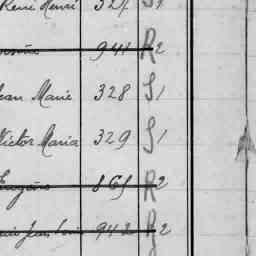 René Henri 327 S1
941 R2
Jean Marie 328 S1
Victor Maria 329 S1
Eugène 865 R2
942 R2